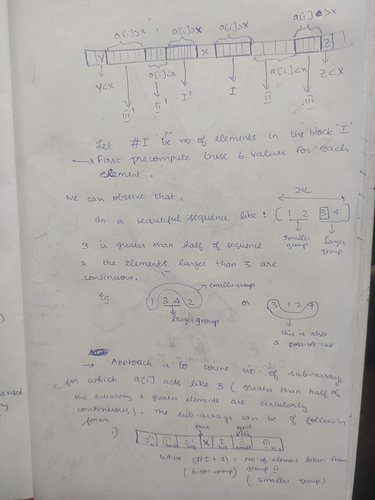 a[i]>x a[i]>x a[i]>x a[i]>x
Y X Z
y<x a[i]<x a[i]<x z<x
iii' ii' I' I ii iii
Let #I be no of elements in the block 'I'
→ First precompute these 6 values for each
element.
we can observe that,
2L
In a beautiful sequence like: ( 1 2 3 4 )
Smaller group Larger group
3 is greater than half of sequence
& the elements larger than 3 are
continuous.
Eg 1 3 4 2 or 3 1 2 4
smaller group
Larger group
This is also
a
→ Approach is to count no. of sub-array
for which a[i] acts like 3 (greater than half of
the subarray & greater elements are circularly
continuous). The sub-arrays can be of following
forms
i) X
where (#I + 1) = no. of element taken from
(Bigger group) group ii
(smaller group)